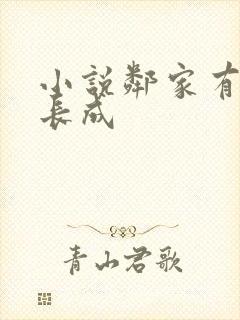 小說鄰家有
長成
青山君歌